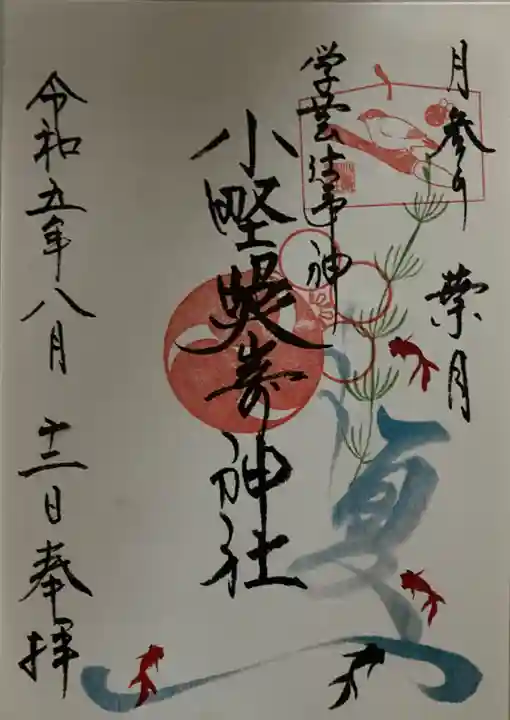 月参り 葉月
学芸法事神
小野照崎神社
夏
令和五年八月 十三日奉拝